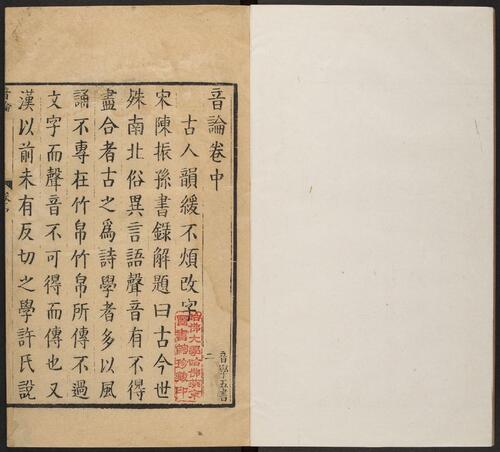 音論卷中
古人韻緩不煩改字
宋陳振孫書錄解題曰古今世
殊南北俗異言語聲音有不得
盡合者古之爲詩學者多以風
誦不專在竹帛竹帛所傳不過
文字而聲音不可得而傳也又
漢以前未有反切之學許氏說
音學五書
二
哈佛大學哈佛燕京
圖書館珍藏印
音論